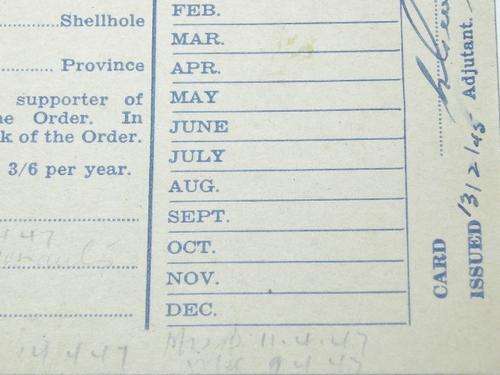 Shellhole
Province
supporter of
Order. In
k of the Order.
3/6 per year.
FEB.
MAR.
APR.
MAY
JUNE
JULY
AUG.
SEPT.
OCT.
NOV.
DEC.
Adjutant.
CARD
ISSUED 13/2/45
47
14 4 47
11.4.47
9 4 47